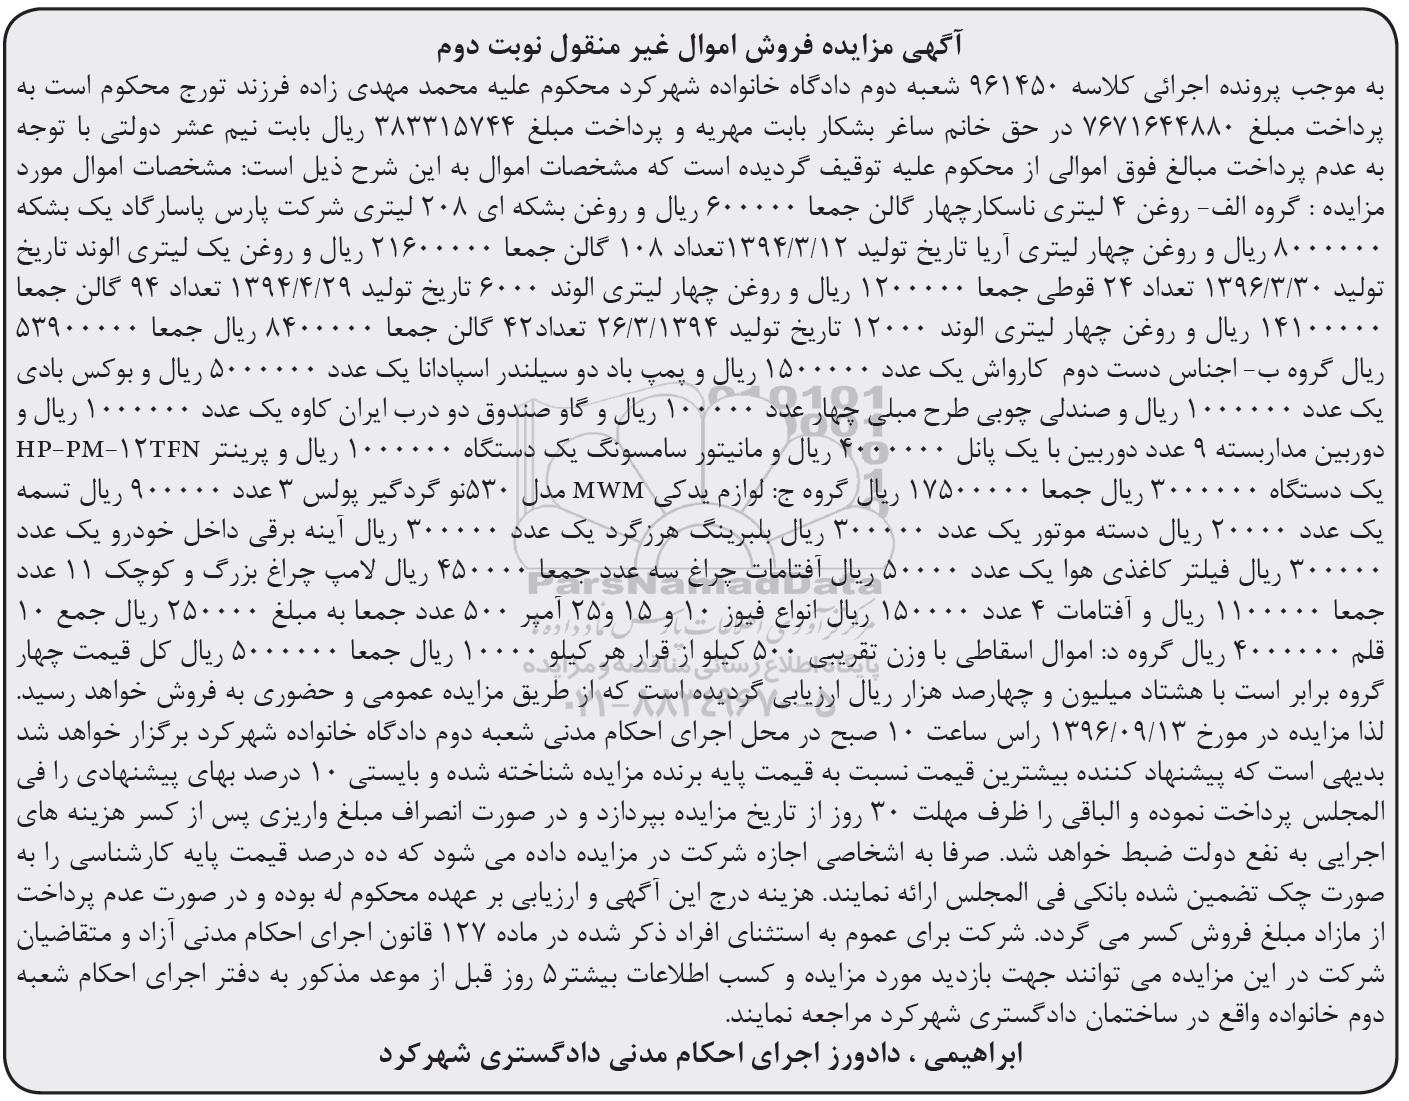 آگهی مزایده فروش اموال غیر منقول نوبت دوم
به موجب پرونده اجرائی کلاسه ۹۶۱۴۵۰ شعبه دوم دادگاه خانواده شهرکرد محکوم علیه محمد مهدی زاده فرزند تورج محکوم است به
پرداخت مبلغ ۷۶۷۱۶۴۴۸۸۰ در حق خانم ساغر بشکار بابت مهریه و پرداخت مبلغ ۳۸۳۳۱۵۷۴۴ ریال بابت نیم عشر دولتی با توجه
به عدم پرداخت مبالغ فوق اموالی از محکوم علیه توقیف گردیده است که مشخصات اموال به این شرح ذیل است: مشخصات اموال مورد
مزایده : گروه الف- روغن ۴ لیتری ناسکارچهار گالن جمعا ۶۰۰۰۰۰ ریال و روغن بشکه ای ۲۰۸ لیتری شرکت پارس پاسارگاد یک بشکه
۸۰۰۰۰۰۰ ریال و روغن چهار لیتری آریا تاریخ تولید ۱۳۹۴/۳/۱۲تعداد ۱۰۸ گالن جمعا ۲۱۶۰۰۰۰۰ ریال و روغن یک لیتری الوند تاریخ
تولید ۱۳۹۶/۳/۳۰ تعداد ۲۴ قوطی جمعا ۱۲۰۰۰۰۰ ریال و روغن چهار لیتری الوند ۶۰۰۰ تاریخ تولید ۱۳۹۴/۴/۲۹ تعداد ۹۴ گالن جمعا
۱۴۱۰۰۰۰۰ ریال و روغن چهار لیتری الوند ۱۲۰۰۰ تاریخ تولید ۲۶/۳/۱۳۹۴ تعداد۴۲ گالن جمعا ۸۴۰۰۰۰۰ ریال جمعا ۵۳۹۰۰۰۰۰
ریال گروه ب- اجناس دست دوم کارواش یک عدد ۱۵۰۰۰۰۰ ریال و پمپ باد دو سیلندر اسپادانا یک عدد ۵۰۰۰۰۰۰ ریال و بوکس بادی
یک عدد ۱۰۰۰۰۰۰ ریال و صندلی چوبی طرح مبلی چهار عدد ۱۰۰۰۰۰ ریال و گاو صندوق دو درب ایران کاوه یک عدد ۱۰۰۰۰۰۰ ریال و
دوربین مداربسته ۹ عدد دوربین با یک پانل ۴۰۰۰۰۰۰ ریال و مانیتور سامسونگ یک دستگاه ۱۰۰۰۰۰۰ ریال و پرینتر HP-PM-۱۲TFN
یک دستگاه ۳۰۰۰۰۰۰ ریال جمعا ۱۷۵۰۰۰۰۰ ریال گروه ج: لوازم یدکی MWM مدل ۵۳۰نو گردگیر پولس ۳ عدد ۹۰۰۰۰۰ ریال تسمه
یک عدد ۲۰۰۰۰ ریال دسته موتور یک عدد ۳۰۰۰۰۰ ریال بلبرینگ هرزگرد یک عدد ۳۰۰۰۰۰ ریال آینه برقی داخل خودرو یک عدد
۳۰۰۰۰۰ ریال فیلتر کاغذی هوا یک عدد ۵۰۰۰۰ ریال آفتامات چراغ سه عدد جمعا ۴۵۰۰۰۰ ریال لامپ چراغ بزرگ و کوچک ۱۱ عدد
جمعا ۱۱۰۰۰۰۰ ریال و آفتامات ۴ عدد ۱۵۰۰۰۰ ریال انواع فیوز ۱۰ و ۱۵ و۲۵ آمپر ۵۰۰ عدد جمعا به مبلغ ۲۵۰۰۰۰ ریال جمع ۱۰
قلم ۴۰۰۰۰۰۰ ریال گروه د: اموال اسقاطی با وزن تقریبی ۵۰۰ کیلو از قرار هر کیلو ۱۰۰۰۰ ریال جمعا ۵۰۰۰۰۰۰ ریال کل قیمت چهار
گروه برابر است با هشتاد میلیون و چهارصد هزار ریال ارزیابی گردیده است که از طریق مزایده عمومی و حضوری به فروش خواهد رسید.
لذا مزایده در مورخ ۱۳۹۶/۰۹/۱۳ راس ساعت ۱۰ صبح در محل اجرای احکام مدنی شعبه دوم دادگاه خانواده شهرکرد برگزار خواهد شد
بدیهی است که پیشنهاد کننده بیشترین قیمت نسبت به قیمت پایه برنده مزایده شناخته شده و بایستی ۱۰ درصد بهای پیشنهادی را فی
المجلس پرداخت نموده و الباقی را ظرف مهلت ۳۰ روز از تاریخ مزایده بپردازد و در صورت انصراف مبلغ واریزی پس از کسر هزینه های
اجرایی به نفع دولت ضبط خواهد شد. صرفا به اشخاصی اجازه شرکت در مزایده داده می شود که ده درصد قیمت پایه کارشناسی را به
صورت چک تضمین شده بانکی فی المجلس ارائه نمایند. هزینه درج این آگهی و ارزیابی بر عهده محکوم له بوده و در صورت عدم پرداخت
از مازاد مبلغ فروش کسر می گردد. شرکت برای عموم به استثنای افراد ذکر شده در ماده ۱۲۷ قانون اجرای احکام مدنی آزاد و متقاضیان
شرکت در این مزایده می توانند جهت بازدید مورد مزایده و کسب اطلاعات بیشتر۵ روز قبل از موعد مذکور به دفتر اجرای احکام شعبه
دوم خانواده واقع در ساختمان دادگستری شهرکرد مراجعه نمایند.
ابراهیمی ، دادورز اجرای احکام مدنی دادگستری شهرکرد
ParsNamadData
پایگاه اطلاع رسانی مناقصه و مزایده
۰۲۱-۸۸۳۴۹۶۷۰-۵